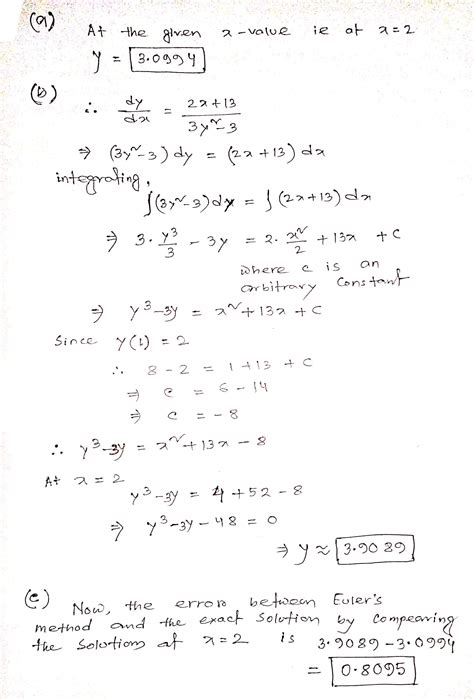 (a) At the given x-value ie at x=2
y = 3.0994
(b) ∴ dy/dx = 2x+13 / 3y²-3
⇒ (3y²-3) dy = (2x+13) dx
integrating,
∫(3y²-3)dy = ∫(2x+13)dx
⇒ 3·y³/3 - 3y = 2·x²/2 + 13x + c
where c is an
arbitrary constant
⇒ y³-3y = x²+13x+c
Since y(1) = 2
∴ 8-2 = 1+13+c
⇒ c = 6-14
⇒ c = -8
∴ y³-3y = x²+13x-8
At x=2
y³-3y = 4+52-8
⇒ y³-3y-48 = 0
⇒ y ≈ 3.9089
(c) Now, the error between Euler's
method and the exact solution by compearing
the solutions at x=2 is 3.9089-3.0994
= 0.8095